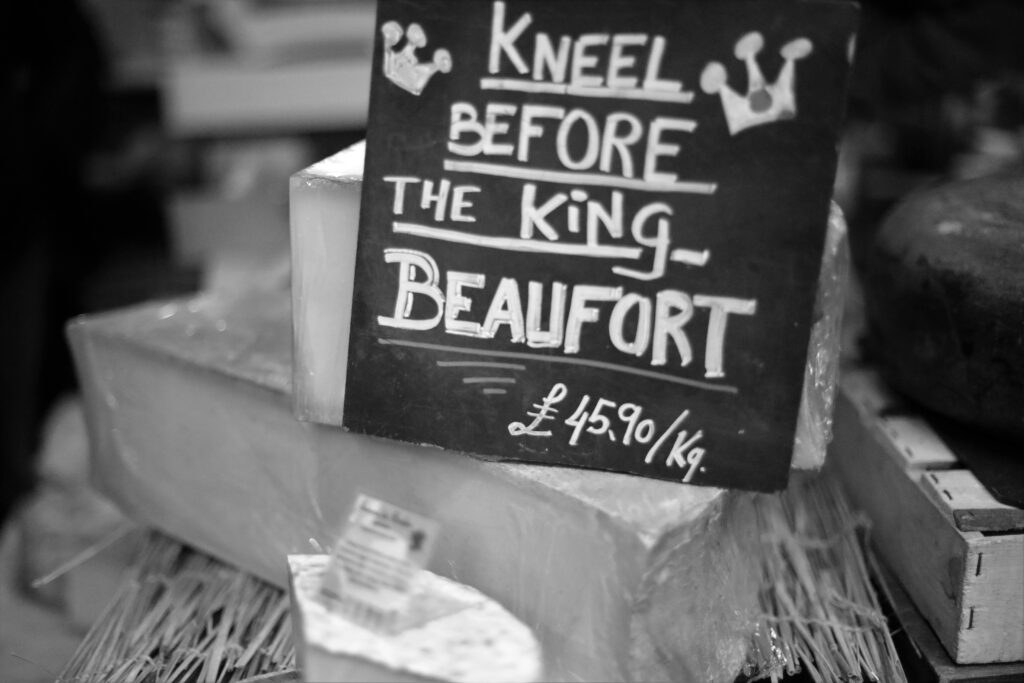 KNEEL
BEFORE
THE KiNg_
BEAUFORT
£45.90/Kg.